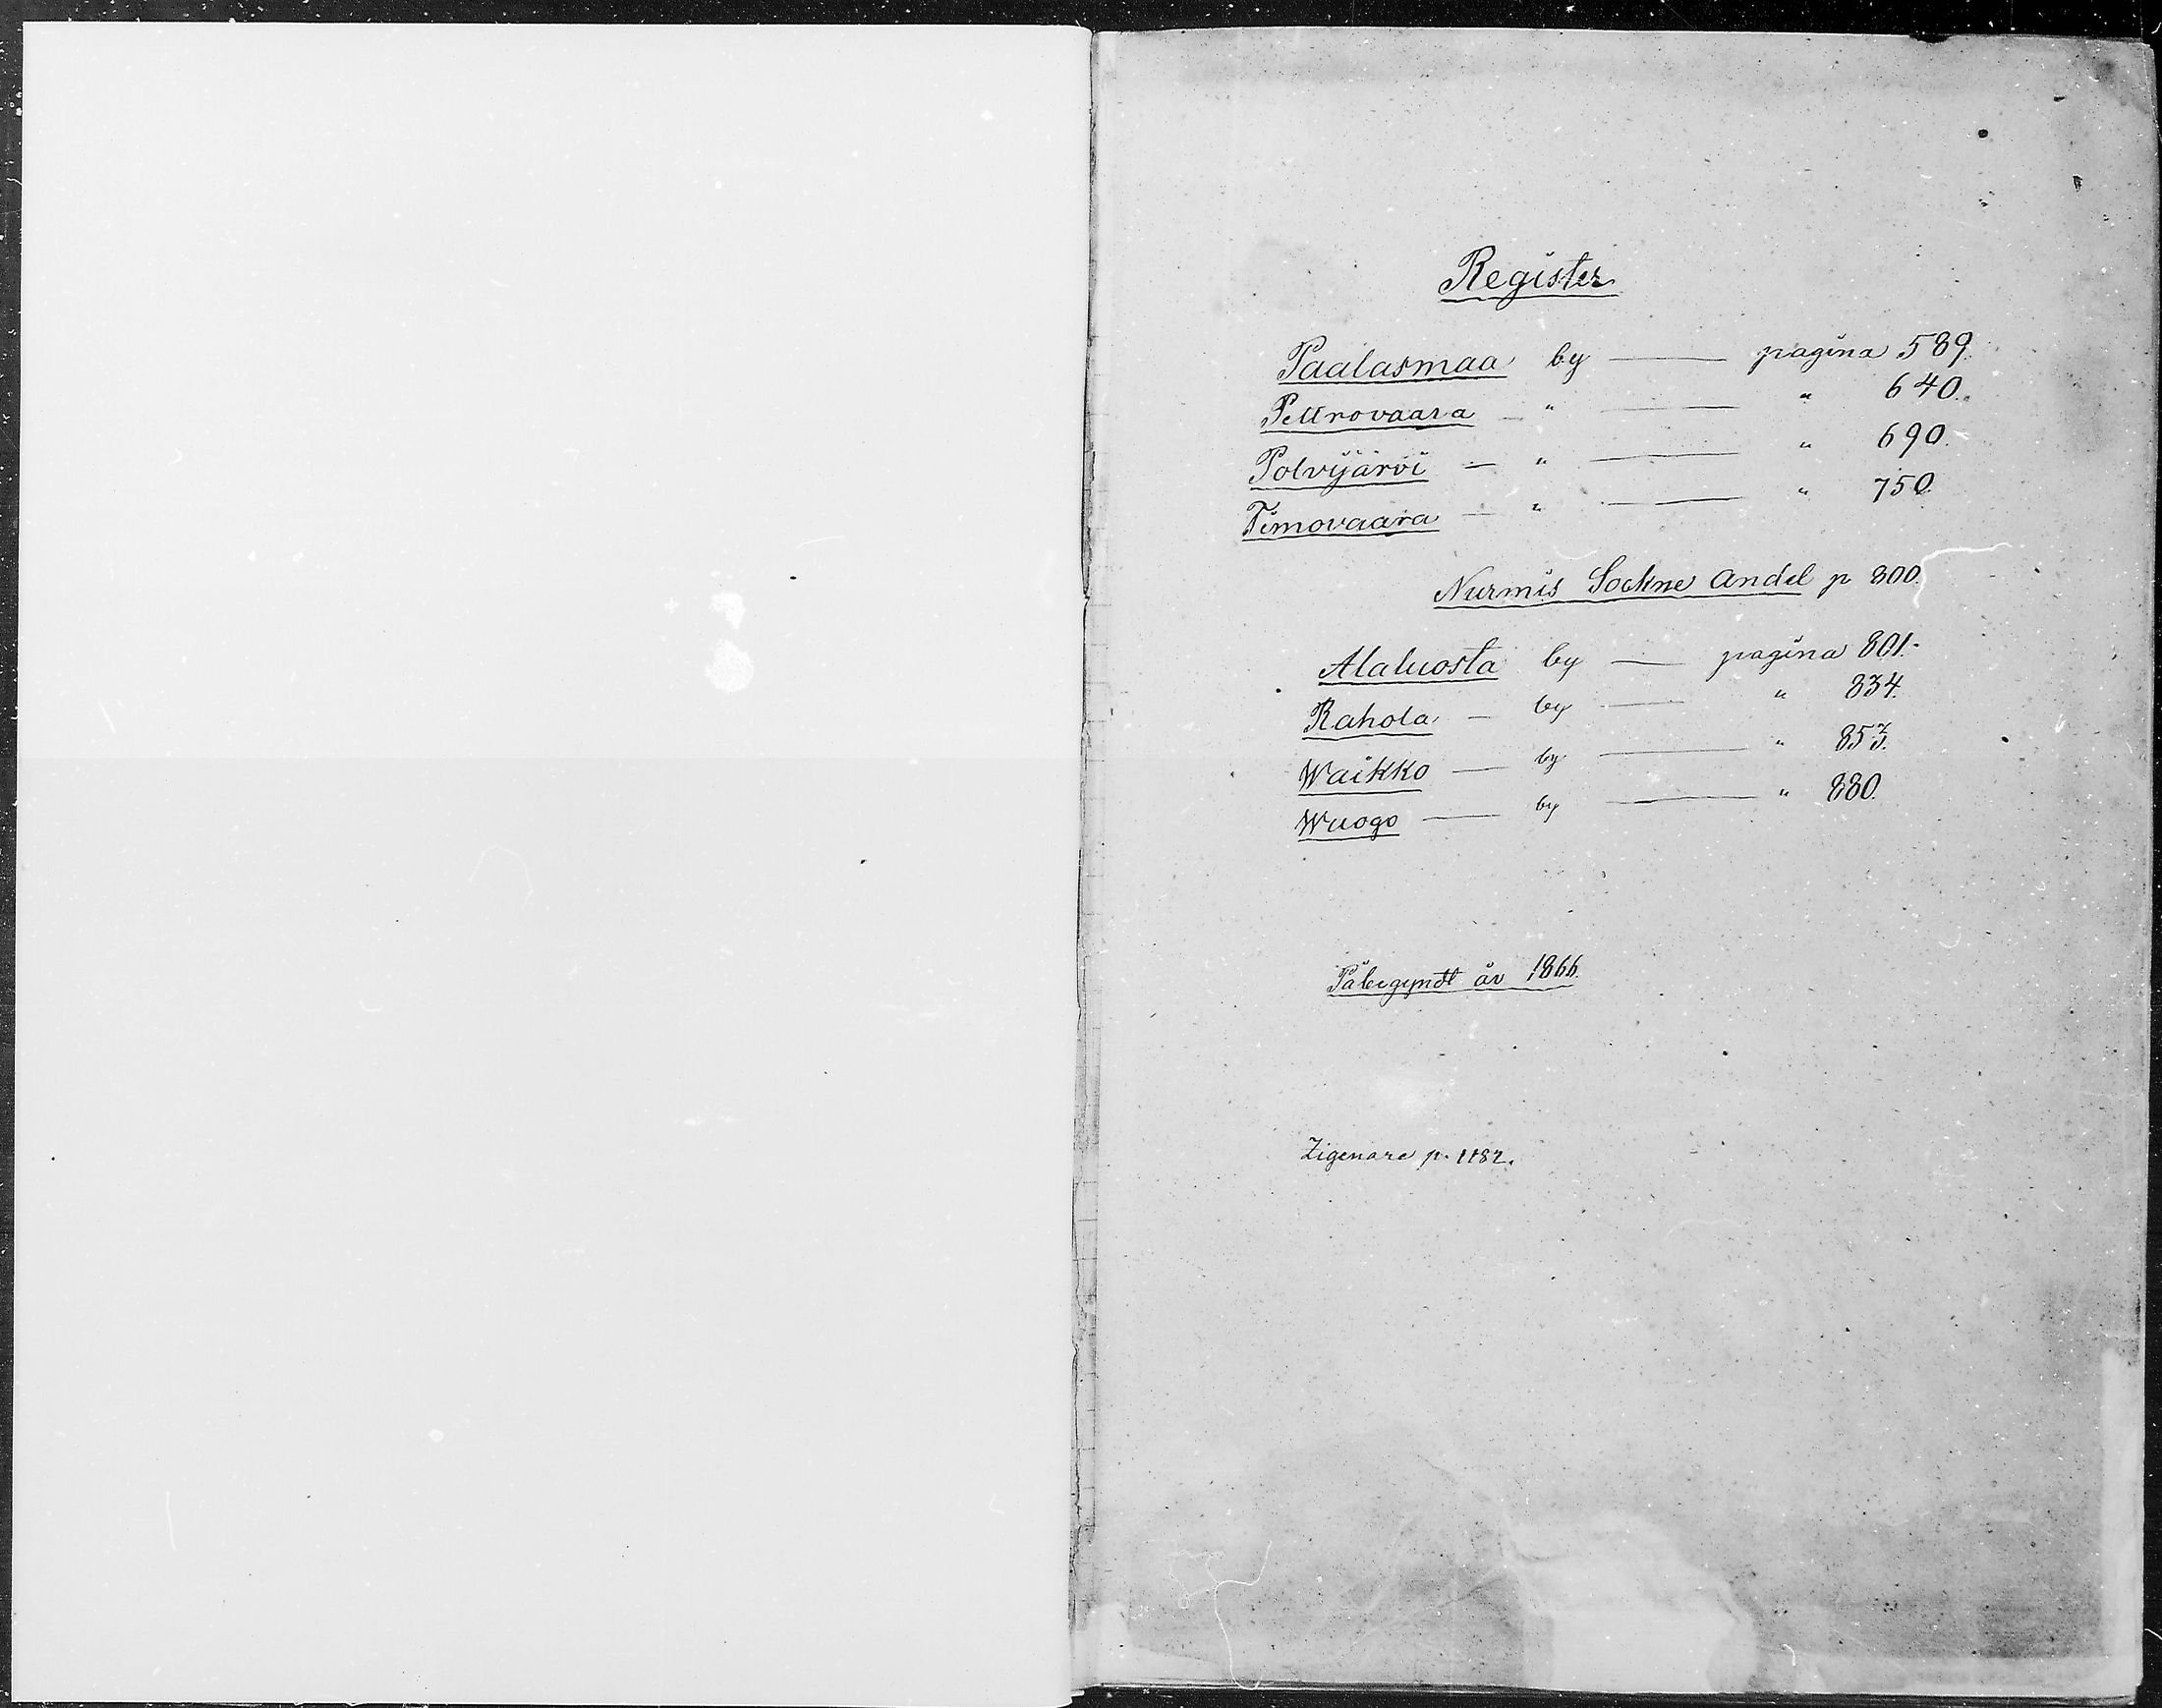 Register
Paalasmaa by — pagina 589.
Petrovaara — " — " 640.
Polvijärvi — " — " 690.
Timovaara — " — " 750.
Nurmis Sockne andel p 800.
Alaluosta by — pagina 801.
Rahola — by — " 834.
Waikko — by — " 853.
Wuogo — by — " 880.
Påbegyndt år 1866.
Zigenare p. 1182.